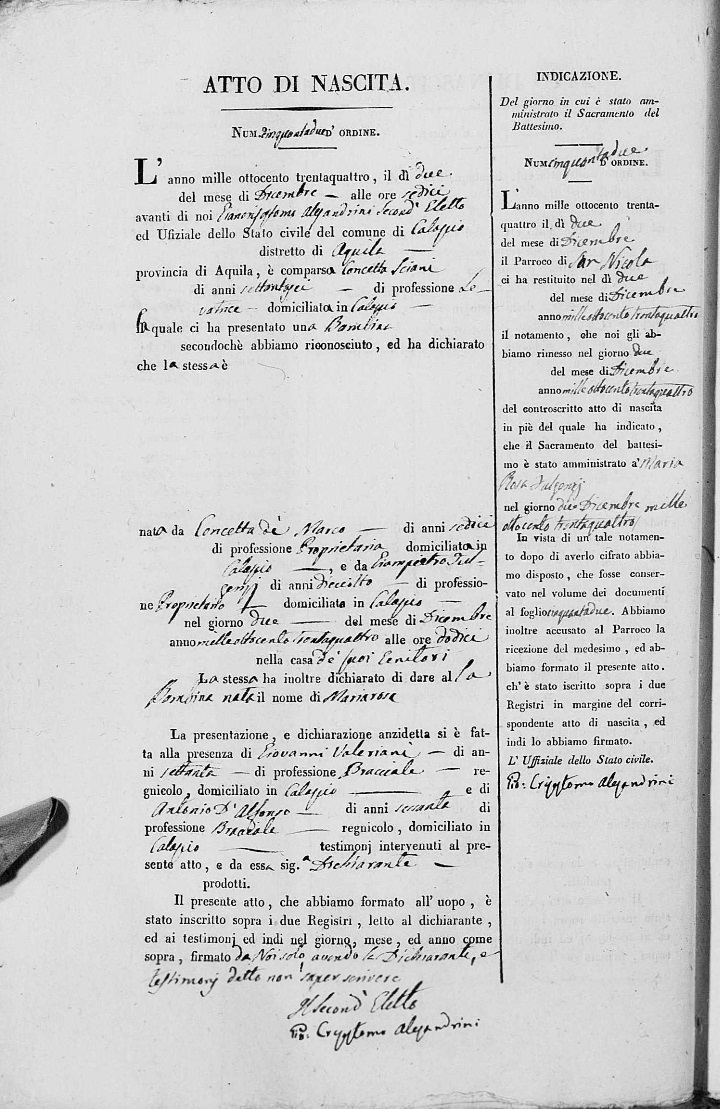 ATTO DI NASCITA.
NUM. Cinquantadue D' ORDINE.
L'anno mille ottocento trentaquattro, il dì due
del mese di Dicembre — alle ore sedici
avanti di noi Giancrisostomo Alesandrini Second' Eletto
ed Ufiziale dello Stato civile del comune di Calascio
distretto di Aquila —
provincia di Aquila, è comparsa Concetta
di anni — di professione Le-
vatrice — domiciliata in Calascio —
la quale ci ha presentato una Bambina
secondochè abbiamo riconosciuto, ed ha dichiarato
che la stessa è
nata da Concetta de Marco — di anni sedici
di professione Proprietaria domiciliata in
Calascio —, e da Giampietro Ful-
genzj di anni diecotto — di professio-
ne Proprietario domiciliato in Calascio —
nel giorno due — del mese di Dicembre
anno mille ottocento trentaquattro alle ore dodici
nella casa de' suoi Genitori
La stessa ha inoltre dichiarato di dare al la
Bambina nata il nome di Mariarosa
La presentazione, e dichiarazione anzidetta si è fat-
ta alla presenza di Giovanni Valeriani — di an-
ni settanta — di professione Bracciale — re-
gnicolo, domiciliato in Calascio — e di
Antonio D'Alfonso — di anni sessanta di
professione Bracciale — regnicolo, domiciliato in
Calascio — testimonj intervenuti al pre-
sente atto, e da essa sig.a Dichiarante —
prodotti.
Il presente atto, che abbiamo formato all' uopo, è
stato inscritto sopra i due Registri, letto al dichiarante,
ed ai testimonj ed indi nel giorno, mese, ed anno come
sopra, firmato da Noi solo avendo la Dichiarante, e
testimonj detto non saper scrivere
Il Second' Eletto
Gio: Crisostomo Alesandrini
INDICAZIONE.
Del giorno in cui è stato am-
ministrato il Sacramento del
Battesimo.
NUM. cinquantadue D' ORDINE.
L'anno mille ottocento trenta-
quattro il dì due
del mese di Dicembre
il Parroco di San Nicola
ci ha restituito nel dì due
del mese di Dicembre
anno mille ottocento trentaquattro
il notamento, che noi gli ab-
biamo rimesso nel giorno due
del mese di Dicembre
anno mille ottocento trentaquattro
del controscritto atto di nascita
in piè del quale ha indicato,
che il Sacramento del battesi-
mo è stato amministrato a' Maria
Rosa Fulgenzj
nel giorno due Dicembre mille
ottocento trentaquattro
In vista di un tale notamen-
to dopo di averlo cifrato abbia-
mo disposto, che fosse conser-
vato nel volume dei documenti
al foglio cinquantadue. Abbiamo
inoltre accusato al Parroco la
ricezione del medesimo, ed ab-
biamo formato il presente atto.
ch' è stato iscritto sopra i due
Registri in margine del corri-
spondente atto di nascita, ed
indi lo abbiamo firmato.
L' Uffiziale dello Stato civile.
Gio: Crisostomo Alesandrini